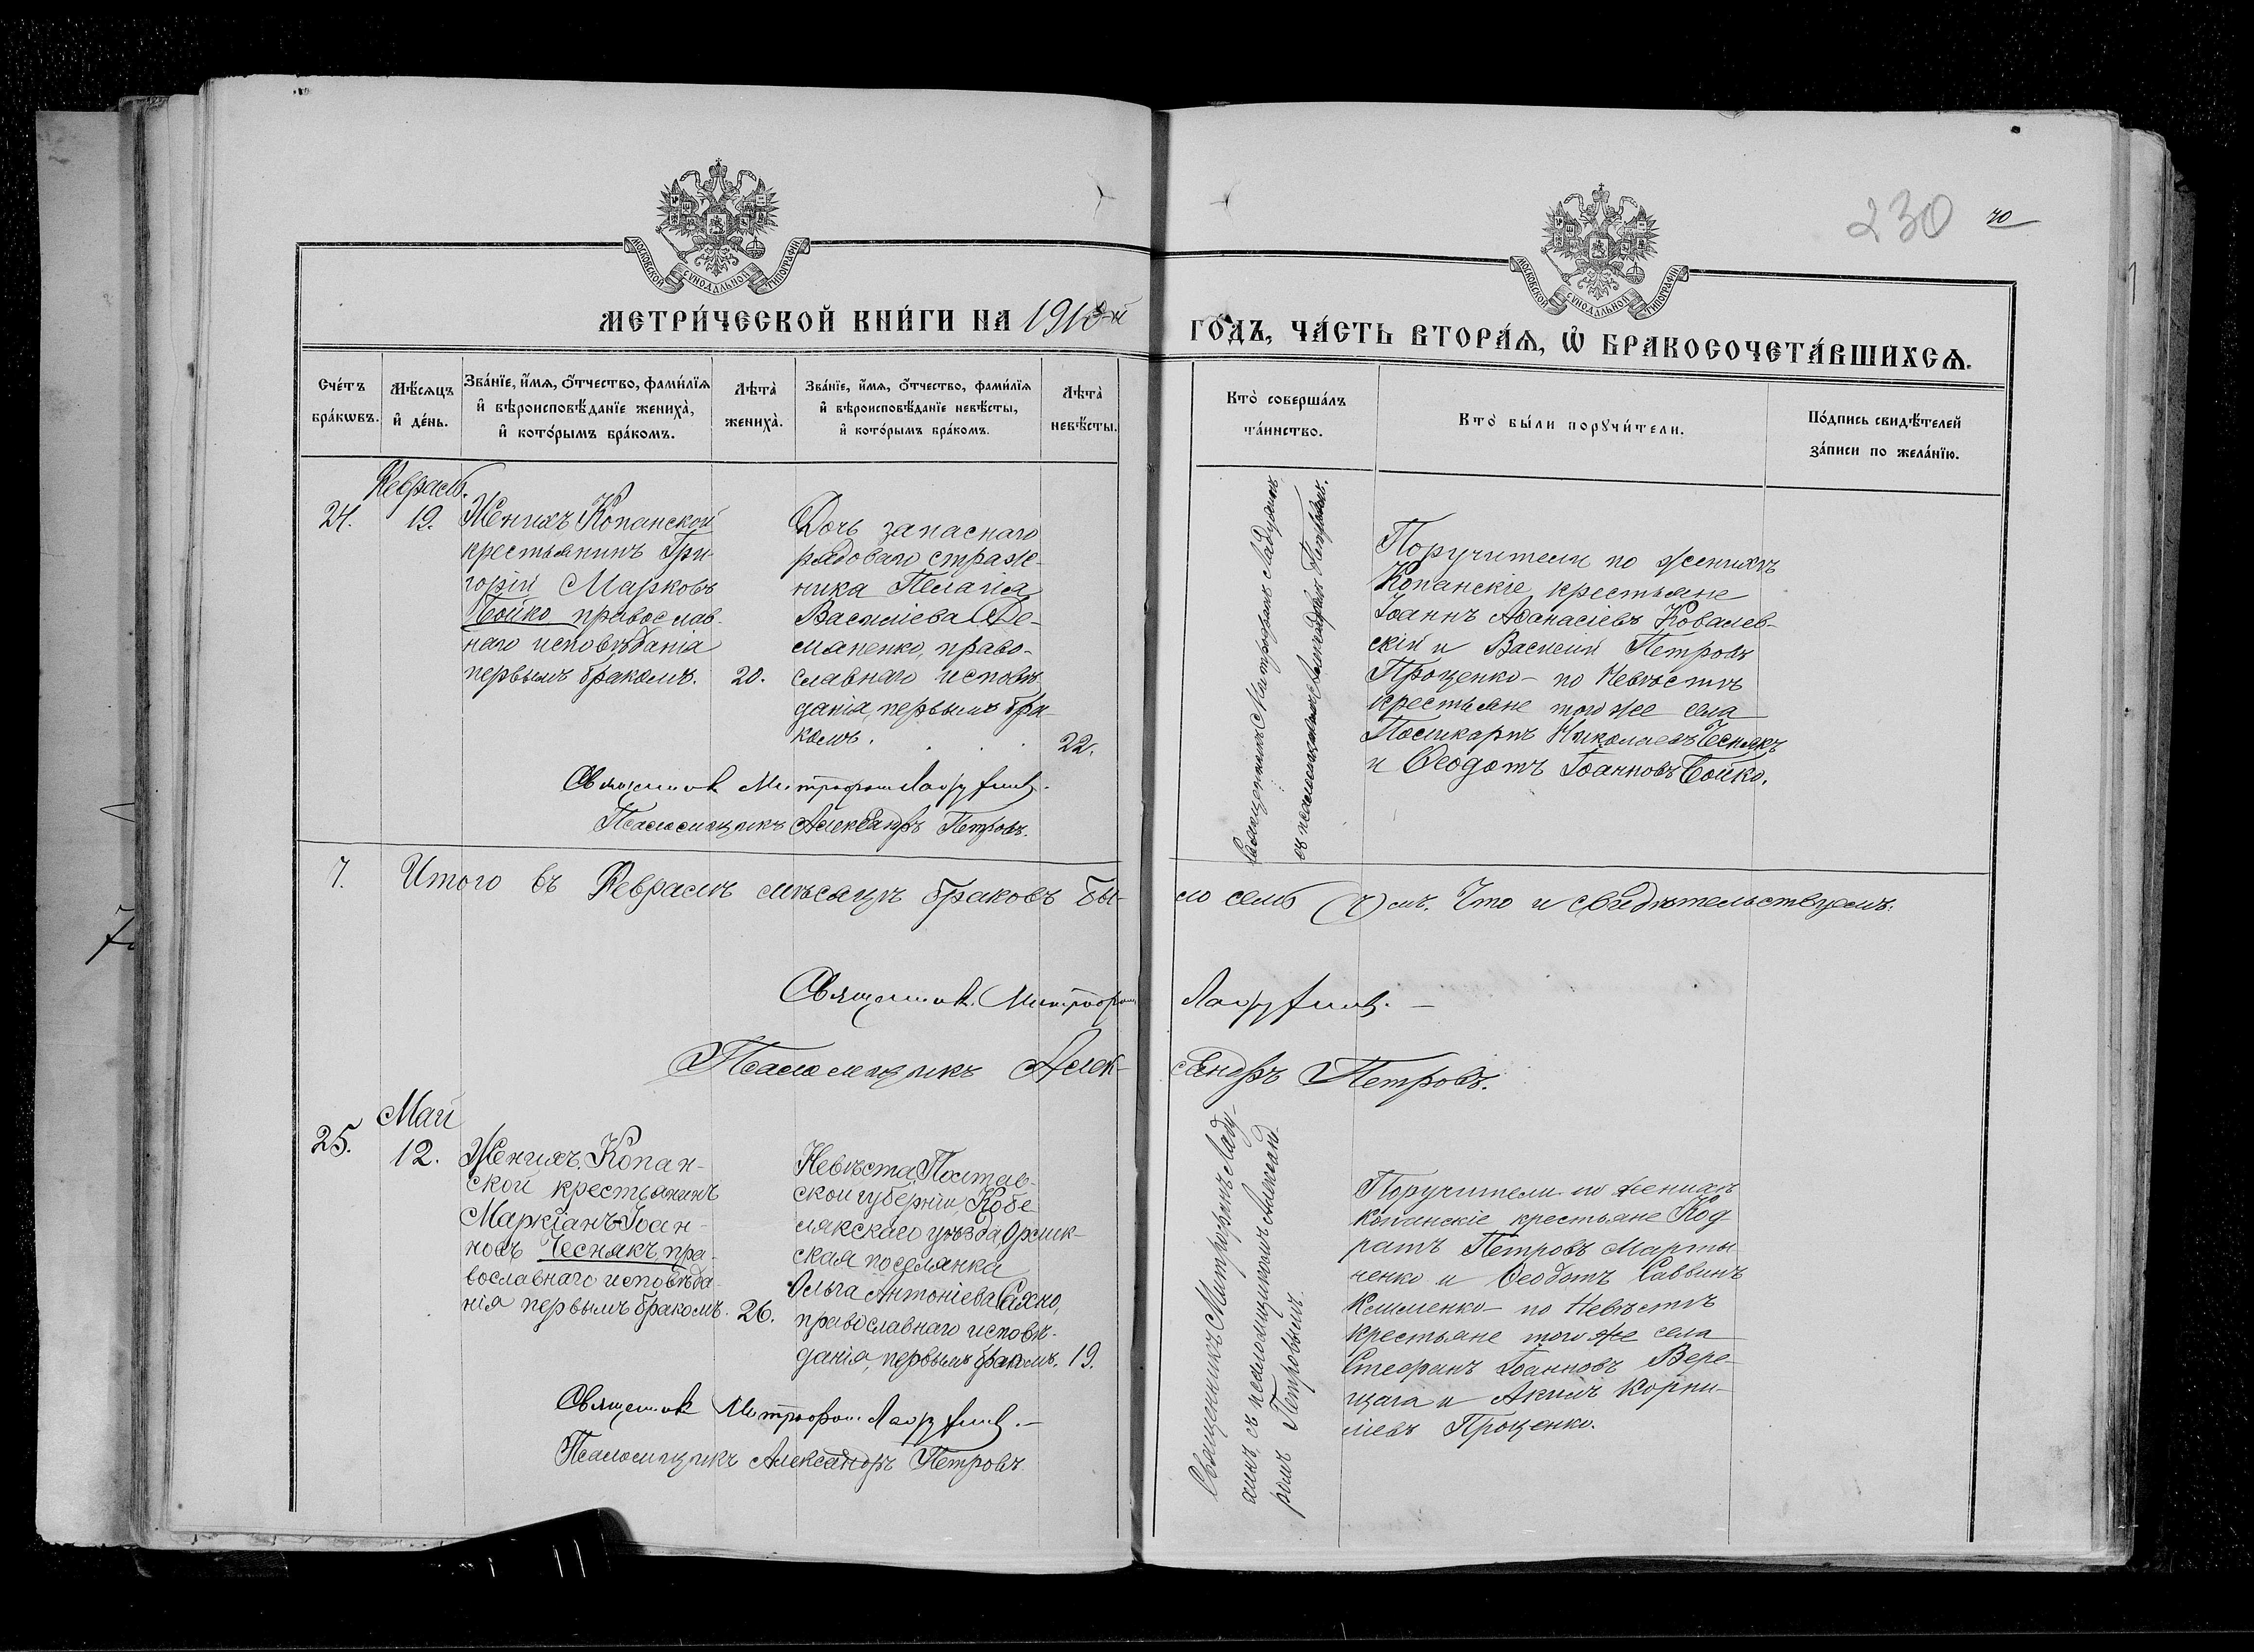 230
70
МОСКОВСКОЙ СѴНОДАЛЬНОЙ ТИПОГРАФІИ
МОСКОВСКОЙ СѴНОДАЛЬНОЙ ТИПОГРАФІИ
МЕТРИ́ЧЕСКОЙ КНИ́ГИ НА 1910-й
ГО́ДЪ, ЧА́СТЬ ВТОРА́Я, Ѡ БРАКОСОЧЕТА́ВШИХСЯ.
Сче́тъ
бра́кѡвъ.
Мѣ́сяцъ
и де́нь.
Зва́нїе, и́мя, о́тчество, фами́лїя
и вѣроисповѣ́данїе жениха̀,
и кото́рымъ бра́комъ.
Лѣта̀
жениха̀.
Зва́нїе, и́мя, о́тчество, фами́лїя
и вѣроисповѣ́данїе невѣ́сты,
и кото́рымъ бра́комъ.
Лѣта̀
невѣ́сты.
Кто̀ соверша́лъ
та́инство.
Кто̀ бы́ли порꙋчи́тели.
По́дпись свидѣ́телей
за́писи по жела́нїю.
24.
Февраль.
19.
Женихъ Копанской
крестьянинъ Гри-
горій Марковъ
Бойко православ-
наго исповѣданія
первымъ бракомъ.
20.
Дочь запаснаго
рядоваго страж-
ника Пелагія
Василіева Де-
мяненко, право-
славнаго исповѣ-
данія, первымъ бра-
комъ.
22.
Священникъ Митрофанъ Ладухинъ
съ псаломщикомъ Александромъ Петровымъ.
Поручители по женихѣ
Копанскіе крестьяне
Іоаннъ Аѳанасіевъ Ковалев-
скій и Василій Петровъ
Проценко - по Невѣстѣ
крестьяне того же села
Поликарпъ Николаевъ Чеснякъ
и Ѳеодотъ Іоанновъ Бойко.
Священник Митрофан Ладухинъ.
Псаломщикъ Александръ Петровъ.
7. Итого въ Февралѣ мѣсяцѣ браковъ бы-
ло семь (7) мъ. Что и свидѣтельствуемъ:
Священник. Митрофан Ладухинъ. —
Псаломщикъ Алек-
сандръ Петровъ.
25.
Май
12.
Женихъ, Копан-
ской крестьянинъ
Маркіанъ Іоан-
новъ Чеснякъ, пра-
вославнаго исповѣда-
нія первымъ бракомъ.
26.
Невѣста, Полтав-
ской губерніи, Кобе-
лякскаго уѣзда, Орлик-
ская поселянка
Ольга Антоніева Сахно,
православнаго исповѣ-
данія, первымъ бракомъ.
19.
Священникъ Митрофанъ Ладу-
хинъ, съ псаломщикомъ Александ-
ромъ Петровымъ.
Поручители по женихѣ
Копанскіе крестьяне Код-
ратъ Петровъ Марты-
ненко и Ѳеодотъ Саввинъ
Клименко - по Невѣстѣ
крестьяне того же села
Стефанъ Іоанновъ Вере-
щага и Акимъ Корни-
ліевъ Проценко.
Священник Митрофан Ладухинъ. —
Псаломщикъ Александръ Петровъ.